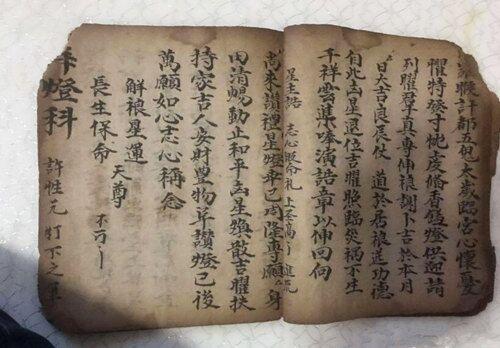 猴計都五鬼太歲臨宮心懷憂
懼特發寸忱虔僃香盤燈供迎請
列曜尊真專伸禳謝卜吉於本月
日大吉良辰仗 道於居禳送功德
自此凶星退位吉曜臨災禍不生
千祥雲集唪演誥章以伸回向
星主誥 志心皈命禮
尚來讚禮星燈辛已周隆專願 身
田清暢動正和平凶星煥散吉曜扶
持家吉人安財豐物阜讚燈已後
萬願如心志心稱念
解禳星運
長生保命 天尊
燈科
許性元